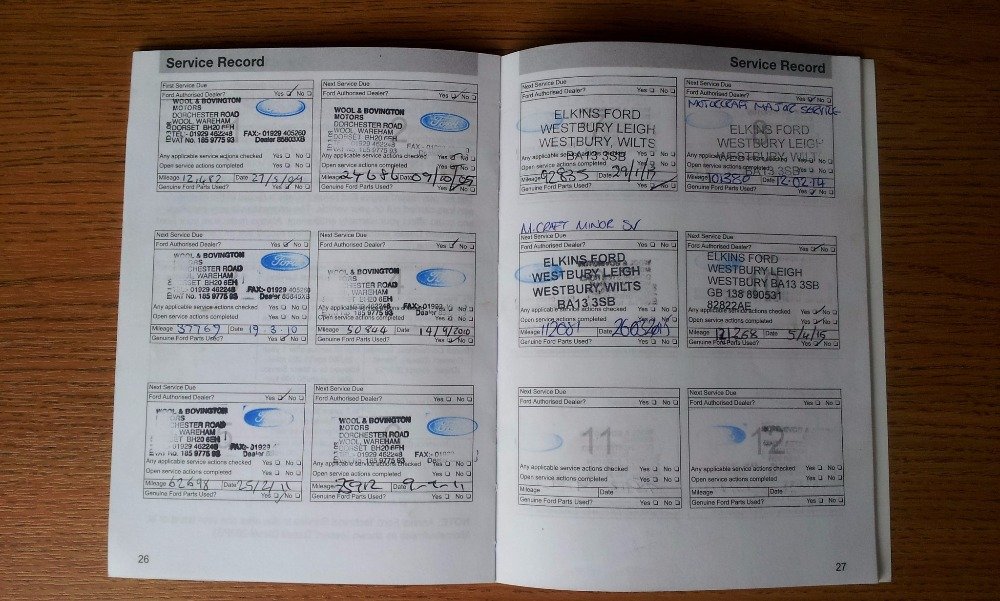 Service Record
First Service Due
Ford Authorised Dealer? Yes No
WOOL & BOVINGTON
MOTORS
DORCHESTER ROAD
WOOL, WAREHAM
DORSET BH20 6EH
TEL:- 01929 462248 FAX:- 01929 405260
VAT No. 185 9775 93 Dealer
Any applicable service actions checked Yes No
Open service actions completed Yes No
Mileage 12,482 Date 27/5/04
Genuine Ford Parts Used? Yes No
Next Service Due
Ford Authorised Dealer? Yes No
WOOL & BOVINGTON
MOTORS
DORCHESTER ROAD
WOOL, WAREHAM
DORSET BH20 6EH
01929 462248 FAX:- 01929
VAT No. 185 9775 93
Any applicable service actions checked Yes No
Open service actions completed Yes No
Mileage 24686 Date 09/10/05
Genuine Ford Parts Used? Yes No
Next Service Due
Ford Authorised Dealer? Yes No
WOOL & BOVINGTON
DORCHESTER ROAD
WOOL, WAREHAM
DORSET BH20 6EH
01929 462248 FAX:- 01929 405260
VAT No. 185 9775 93 Dealer
Any applicable service actions checked Yes No
Open service actions completed Yes No
Mileage 37769 Date 19.3.10
Genuine Ford Parts Used? Yes No
Next Service Due
Ford Authorised Dealer? Yes No
WOOL & BOVINGTON
MOTORS
DORCHESTER ROAD
WAREHAM
BH20 6EH
FAX:- 01929
185 9775 93 Dealer
Any applicable service actions checked Yes No
Open service actions completed Yes No
Mileage 50844 Date 14/9/2010
Genuine Ford Parts Used? Yes No
Next Service Due
Ford Authorised Dealer? Yes No
WOOL & BOVINGTON
DORCHESTER ROAD
WAREHAM
BH20 6EH
01929 462248 FAX:- 01929
No. 185 9775 93 Dealer
Any applicable service actions checked Yes No
Open service actions completed Yes No
Mileage 62698 Date 25/2/11
Genuine Ford Parts Used? Yes No
Next Service Due
Ford Authorised Dealer? Yes No
WOOL & BOVINGTON
MOTORS
DORCHESTER ROAD
WOOL, WAREHAM
DORSET BH20 6EH
01929 462248 FAX:- 01929
No. 185 9775 93 Dealer
Any applicable service actions checked Yes No
Open service actions completed Yes No
Mileage Date
Genuine Ford Parts Used? Yes No
26
Service Record
Next Service Due
Ford Authorised Dealer? Yes No
ELKINS FORD
WESTBURY LEIGH
WESTBURY, WILTS
BA13 3SB
Any applicable service actions checked Yes No
Open service actions completed Yes No
Mileage 92835 Date 29/1/13
Genuine Ford Parts Used? Yes No
Next Service Due
Ford Authorised Dealer? Yes No
MOTORCRAFT MAJOR SERVICE
ELKINS FORD
WESTBURY LEIGH
WESTBURY, WILTS
BA13 3SB
Any applicable service actions checked Yes No
Open service actions completed Yes No
Mileage 101380 Date 12.02.14
Genuine Ford Parts Used? Yes No
M.CRAFT MINOR SV
Next Service Due
Ford Authorised Dealer? Yes No
ELKINS FORD
WESTBURY LEIGH
WESTBURY, WILTS
BA13 3SB
Any applicable service actions checked Yes No
Open service actions completed Yes No
Mileage 112081 Date
Genuine Ford Parts Used? Yes No
Next Service Due
Ford Authorised Dealer? Yes No
ELKINS FORD
WESTBURY LEIGH
WESTBURY BA13 3SB
GB 138 890531
82822AE
Any applicable service actions checked Yes No
Open service actions completed Yes No
Mileage 121258 Date 5/4/15
Genuine Ford Parts Used? Yes No
Next Service Due
Ford Authorised Dealer? Yes No
11
Any applicable service actions checked Yes No
Open service actions completed Yes No
Mileage Date
Genuine Ford Parts Used? Yes No
Next Service Due
Ford Authorised Dealer? Yes No
12
Any applicable service actions checked Yes No
Open service actions completed Yes No
Mileage Date
Genuine Ford Parts Used? Yes No
27